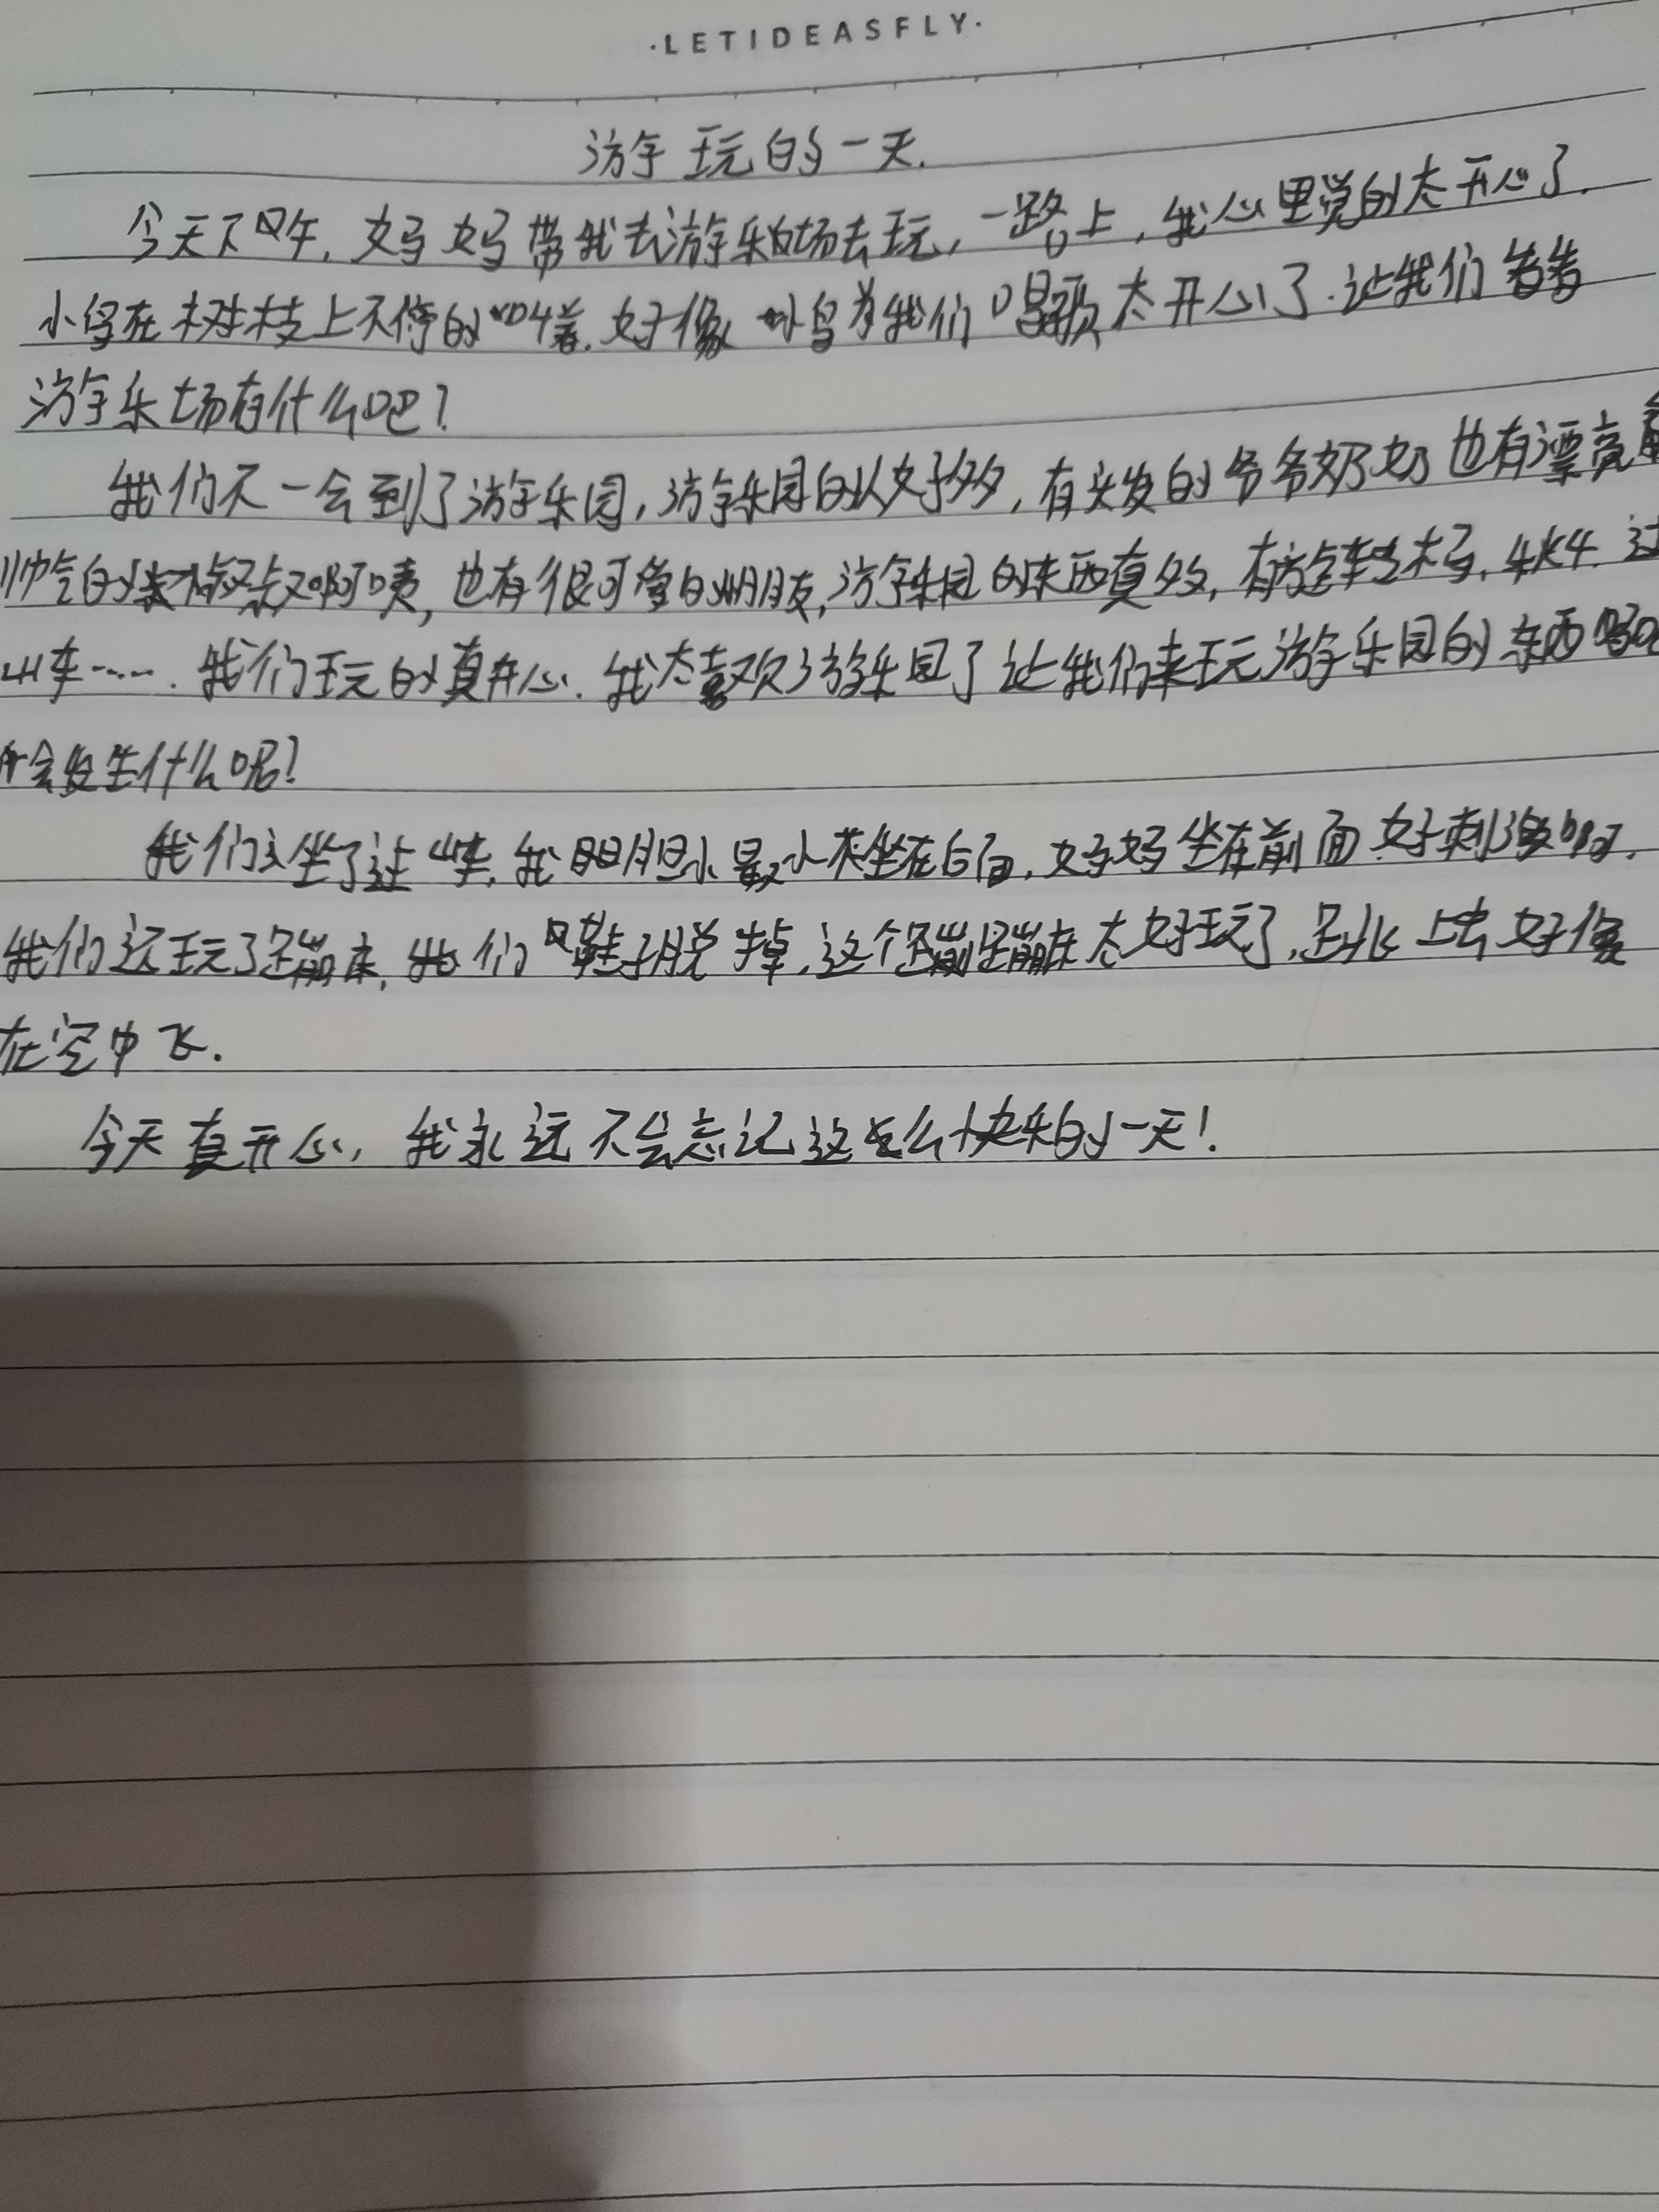 ·LETIDEASFLY·
游玩的一天.
今天下午,妈妈带我去游乐场去玩,一路上,我心里觉的太开心了.
小鸟在树枝上不停的叫着.好像小鸟为我们唱歌太开心了.让我们看看
游乐场有什么吧?
我们不一会到了游乐园,游乐园的人好多,有头发的爷爷奶奶也有漂亮
帅气的叔叔啊咦,也有很可爱的朋友,游乐园的东西真多,有旋车木马.
山车…….我们玩的真开心.我太喜欢游乐园了让我们来玩游乐园的东西
会发生什么呢?
我们坐了过山车,我胆小最小坐在后面,妈妈坐在前面好刺激啊,
我们还玩了蹦床,我们把鞋子脱掉,这个蹦蹦床太好玩了,跳上去好像
在空中飞.
今天真开心,我永远不会忘记这么快乐的一天!